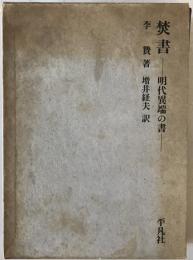 焚書
——明代異端の書——
李贄著 増井経夫訳
平凡社